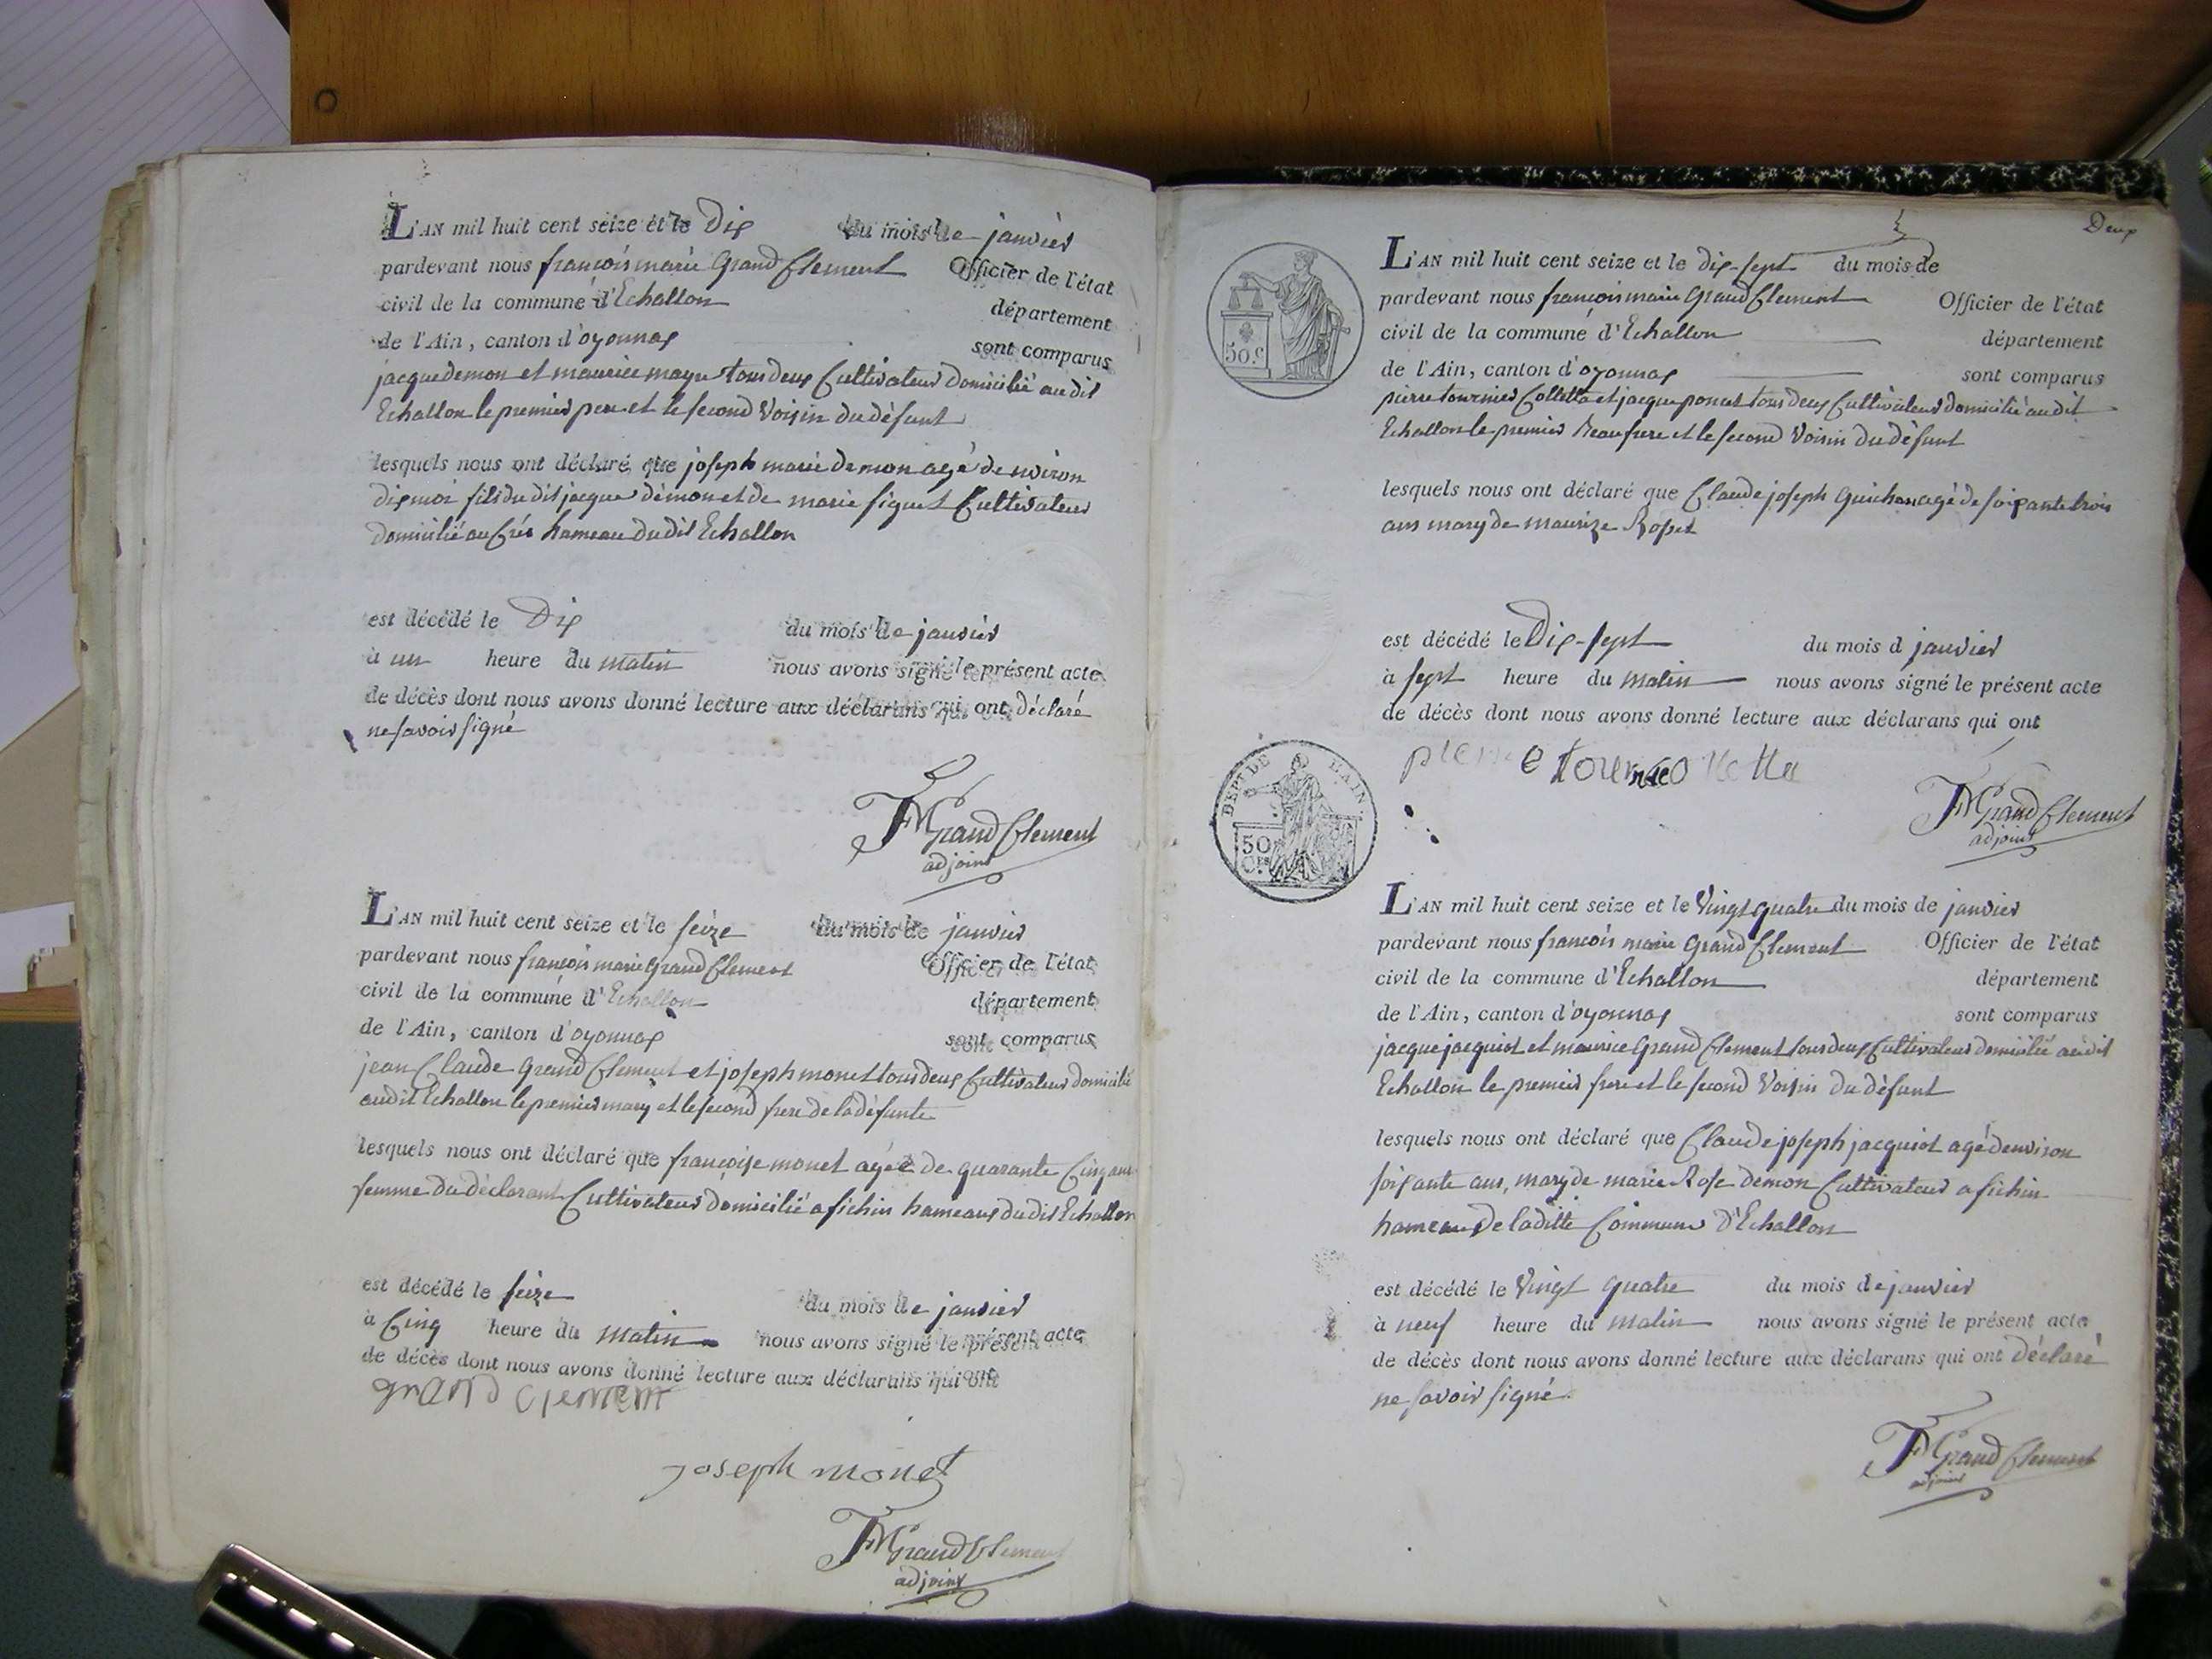 L'AN mil huit cent seize et le Dix du mois de janvier
pardevant nous françois marie Grand Clement Officier de l'état
civil de la commune d'Echallon département
de l'Ain, canton d'oyonnax sont comparus
jacque demon et maurice mayu tous deux Cultivateur Domicilié audit
Echallon le premier pere et le second Voisin du défunt
lesquels nous ont déclaré que joseph marie demon agé denviron
dix moi fils du dit jacque démon et de marie figuet Cultivateur
domicilié au Crés hameau du dit Echallon
est décédé le Dix du mois de janvier
à un heure du matin nous avons signé le présent acte
de décès dont nous avons donné lecture aux déclarans qui ont déclaré
ne savoir signé
FMGrand Clement
adjoint
L'AN mil huit cent seize et le seize du mois de janvier
pardevant nous françois marie Grand Clement Officier de l'état
civil de la commune d'Echallon département
de l'Ain, canton d'oyonnax sont comparus
jean Claude Grand Clement et joseph monet tous deux Cultivateur domicilié
audit Echallon le premier mary et le second frere de la défunte
lesquels nous ont déclaré que françoise monet agéé de quarante Cinq ans
femme du déclarant Cultivateur domicilié a fichin hameaux du dit Echallon
est décédé le seize du mois de janvier
à Cinq heure du matin nous avons signé le présent acte
de décès dont nous avons donné lecture aux déclarans qui ont
grand clement
joseph monet
FMGrand Clement
adjoint
Deux
L'AN mil huit cent seize et le dix-sept du mois de
pardevant nous françois marie Grand Clement Officier de l'état
civil de la commune d'Echallon département
de l'Ain, canton d'oyonnax sont comparus
pierre tournier Colletta et jacque poncet tous deux Cultivateur domicilié audit
Echallon le premier Beaufrere et le second Voisin du défunt
lesquels nous ont déclaré que Claude joseph Guichon agé de soixante trois
ans mary de maurize Rosset
est décédé le Dix-sept du mois d janvier
à sept heure du matin nous avons signé le présent acte
de décès dont nous avons donné lecture aux déclarans qui ont
DEPT DE L'AIN
50 Ces
50 c
FMGrand Clement
adjoint
L'AN mil huit cent seize et le Vingt quatre du mois de janvier
pardevant nous françois marie Grand Clement Officier de l'état
civil de la commune d'Echallon département
de l'Ain, canton d'oyonnax sont comparus
jacque jacquiot et maurice Grand Clement tous deux Cultivateur domicilié audit
Echallon le premier frere et le second Voisin du défunt
lesquels nous ont déclaré que Claude joseph jacquiot agé denviron
soixante ans, mary de marie Rose demon Cultivateur a fichin
hameau de laditte Commune d'Echallon
est décédé le Vingt quatre du mois de janvier
à neuf heure du matin nous avons signé le présent acte
de décès dont nous avons donné lecture aux déclarans qui ont déclaré
ne savoir signé
FMGrand Clement
adjoint